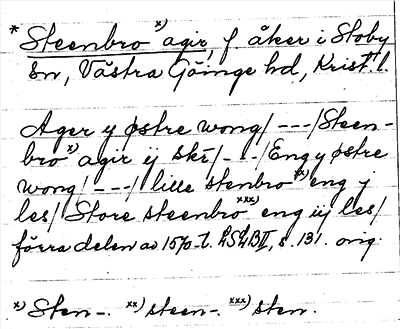 * Steenbro x) agir, f åker i Stoby
sn, Västra Göinge hd, Krist. l.
Ager y østre wong/ ---/ Steen-
bro x) agir ij skr/ --- / Eng y østre
wong/ ---/ lille stenbro xx) eng j
les/ Store steenbro xxx) eng iij les/
förra delen av 1570-t. LSLB II, s. 131. orig.
x) Sten-. xx) steen-. xxx) sten.